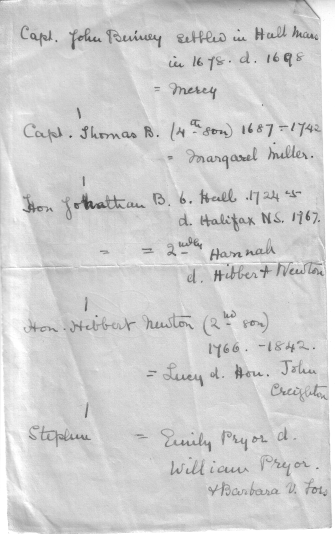 Capt. John Binney settled in Hull Mass
in 1678. d. 1698
= Mercy
Capt. Thomas B. (4th son) 1687-1742
= Margaret Miller.
Hon Jonathan B. b. Hull 1724-5
d. Halifax N.S. 1967.
= = 2ndly Hannah
d. Hibbert Newton
Hon. Hibbert Newton (2nd son)
1766. - 1842.
= Lucy d. Hon. John
Creighton
Stephen = Emily Pryor d.
William Pryor.
+ Barbara V. Foss